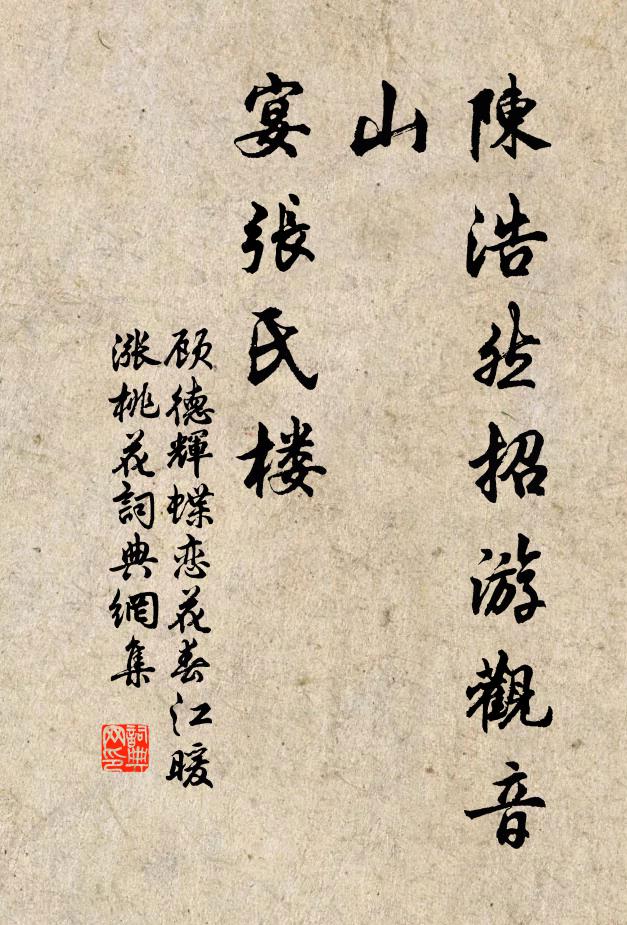 陳浩然招游觀音
山
宴張氏楼
顾德輝蝶恋花春江暖
漲桃花詞典網集
詞典
网印